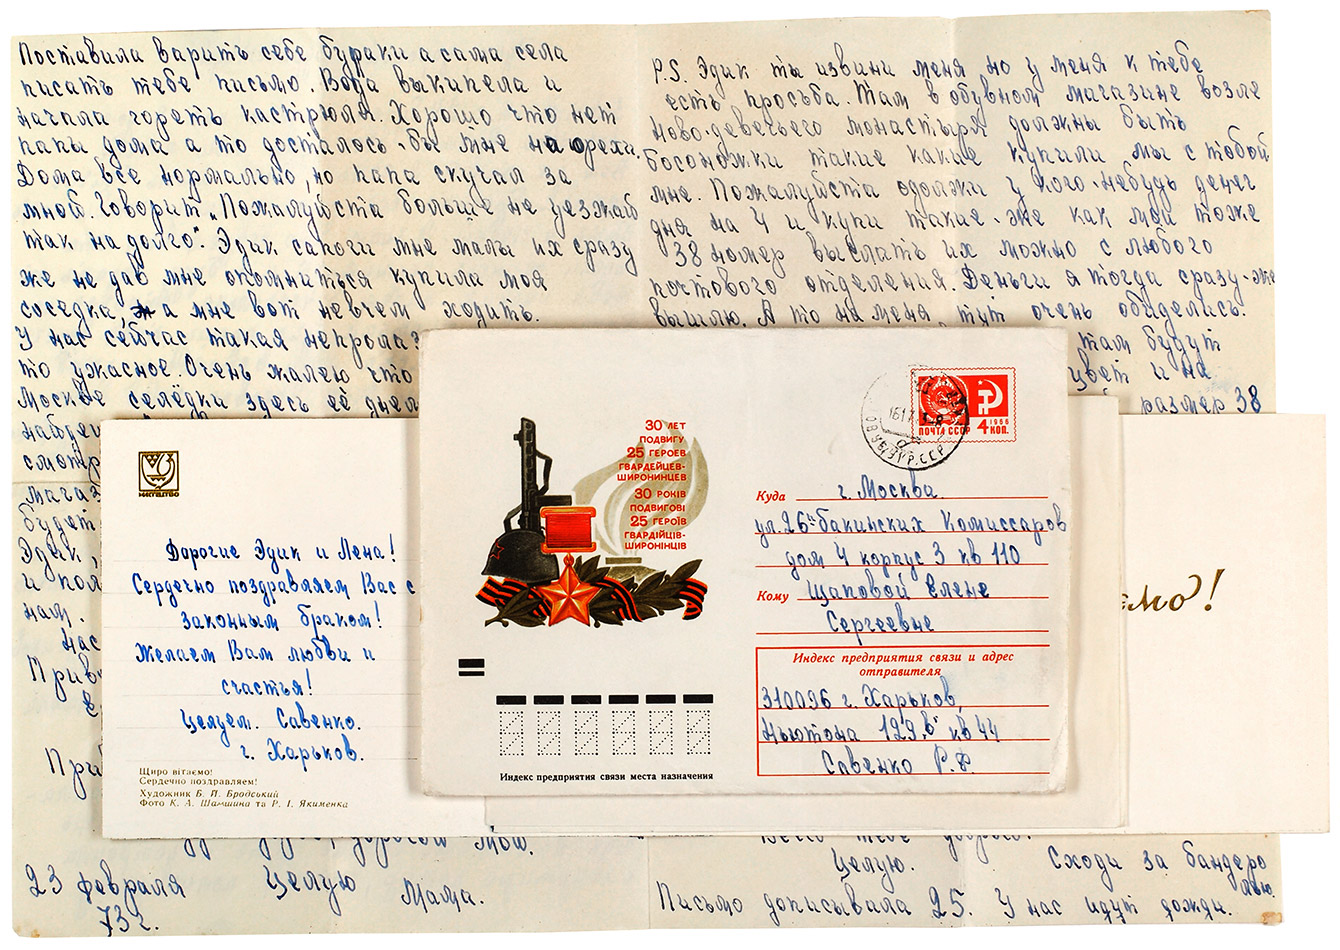 Поставила варить себе бураки а сама села
писать тебе письмо. Вода выкипела и
начала гореть кастрюля. Хорошо что нет
папы дома а то досталось-бы мне на орехи.
Дома все нормально, но папа скучал за
мной. Говорит „Пожалуйста больше не уезжай
так на долго". Эдик сапоги мне малы их сразу
же не дав мне опомниться купила моя
соседка, а мне вот невчем ходить.
У нас сейчас такая непролаз
то ужасное. Очень жалею что
Москве селёдки здесь её днём
смотр
магаз
будет
Эдик,
и пол
нам.
Нас
Прив
23 февраля
73 г.
дорогой мой.
Целую Мама.
P.S. Эдик ты извини меня но у меня к тебе
есть просьба. Там в обувном магазине возле
ново-девечьего монастыря должны быть
босоножки такие какие купили мы с тобой
мне. Пожалуйста одолжи у кого-нибудь денег
дня на 4 и купи такие-же как мои тоже
38 номер выслать их можно с любого
почтового отделения. Деньги я тогда сразу-же
вышлю. А то на меня тут очень обиделись.
там будут
цвет и на
размер 38
Всего тебе доброго.
Целую. Сходи за бандеро
лью.
Письмо дописывала 25. У нас идут дожди.
МИСТЕЦТВО
Дорогие Эдик и Лена!
Сердечно поздравляем Вас с
законным браком!
Желаем Вам любви и
счастья!
Целуем. Савенко.
г. Харьков.
Щиро вітаємо!
Сердечно поздравляем!
Художник Б. Й. Бродський
Фото К. А. Шамшина та Р. І. Якименка
30 ЛЕТ
ПОДВИГУ
25 ГЕРОЕВ
ГВАРДЕЙЦЕВ-
ШИРОНИНЦЕВ
30 РОКІВ
ПОДВИГОВІ
25 ГЕРОЇВ
ГВАРДІЙЦІВ-
ШИРОНІНЦІВ
ПОЧТА СССР 4 КОП.
1966
Куда г. Москва
ул. 26ти бакинских Комиссаров
дом 4 корпус 3 кв 110
Кому Щаповой Елене
Сергеевне
Индекс предприятия связи и адрес
отправителя
310096 г. Харьков,
Ньютона 129"в" кв 44
Савенко Р.Ф.
Индекс предприятия связи места назначения
ємо!